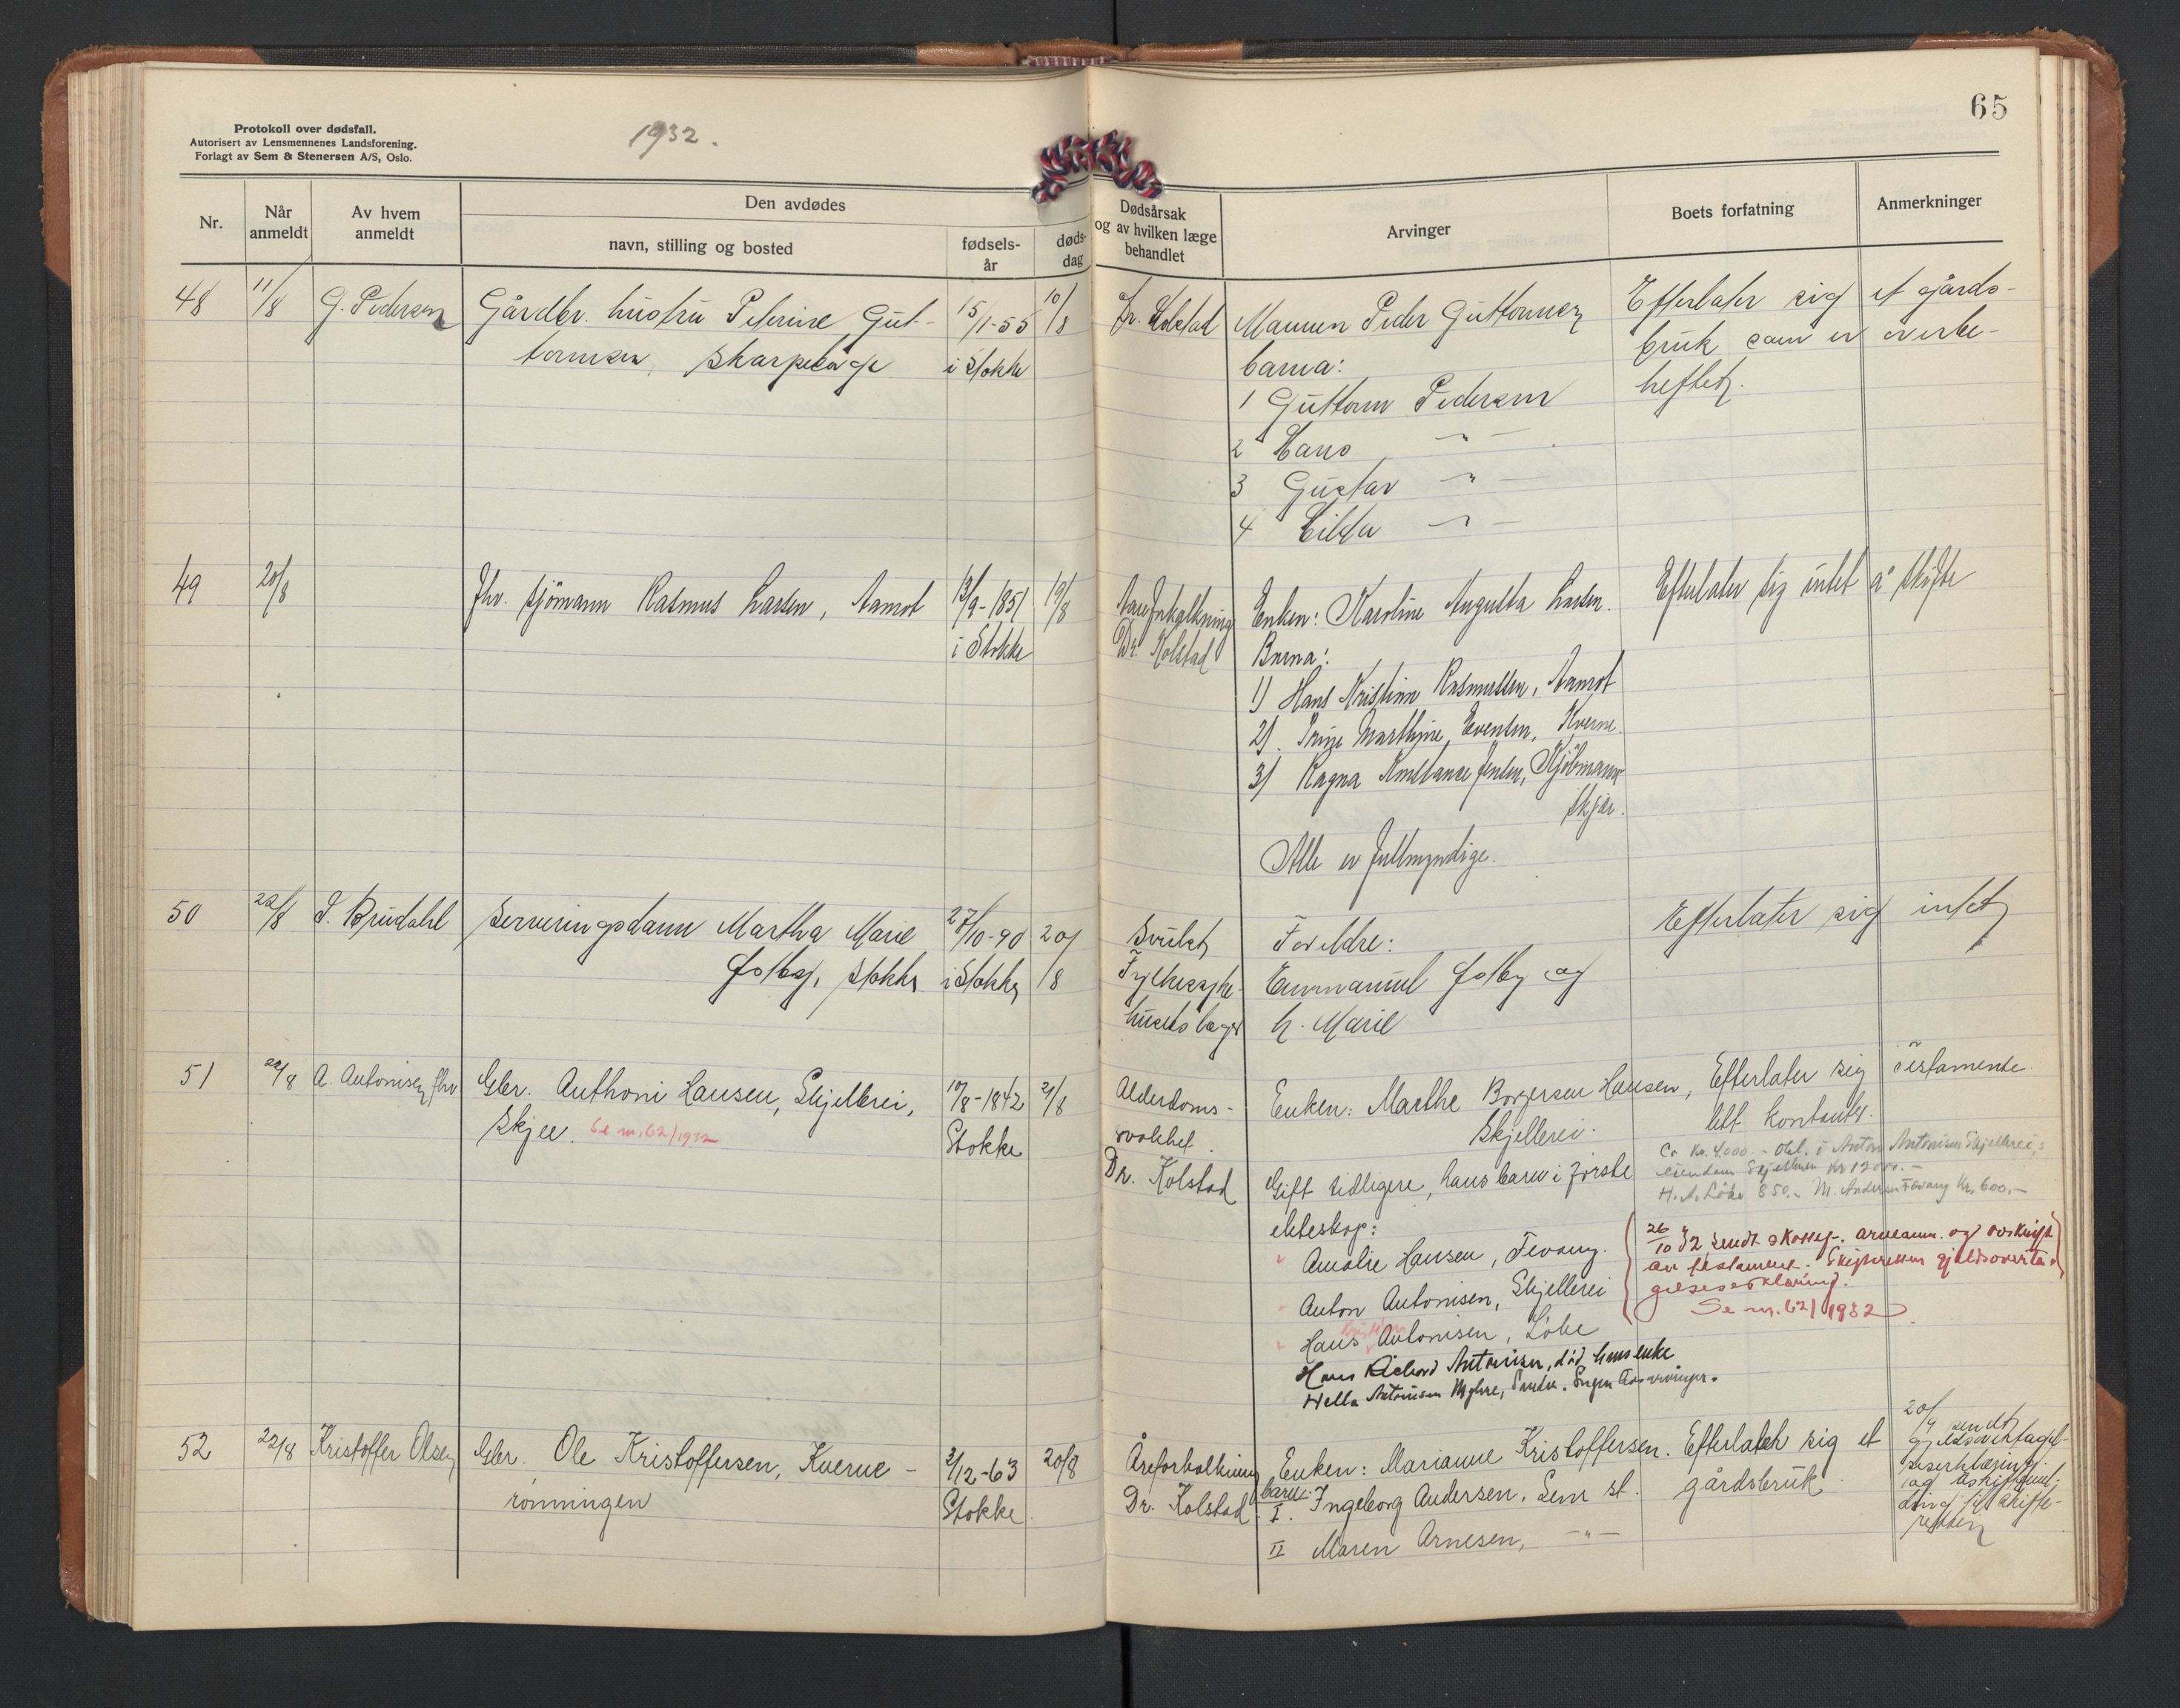 65
Protokoll over dødsfall.
Autorisert av Lensmennenes Landsforening.
Forlagt av Sem & Stenersen A/S, Oslo.
1932.
Nr.
Når anmeldt
Av hvem anmeldt
Den avdødes
navn, stilling og bosted
fødsels-år
døds-dag
Dødsårsak og av hvilken læge behandlet
Arvinger
Boets forfatning
Anmerkninger
48 11/8 G. Pedersen Gårdbr. hustru Peterine Gut- 15/1-55 10/8 Dr. Kolstad Mannen Peder Guttormsen Efterlater sig et gårds-
tormsen, i Stokke barna: bruk som er overbe-
1 Guttorm Pedersen heftet.
2 Hans -"-
3 Gustav -"-
4 Hilda -"-
49 20/8 fhv. sjömann Rasmus Larsen, Aamot 13/9-1851 19/8 Aareforkalkning Enken: Karoline Augusta Larsen. Efterlater sig intet å skifte
i Stokke Dr. Kolstad Barna:
1) Hans Kristian Rasmussen, Aamot
2). Marthine Evensen, Kverne.
3) Ragna Konstanse Jensen, Kjöbmann-
skjær.
Alle er fullmyndige.
50 22/8 Brudahl Serveringsdame Martha Marie 27/10-90 20/8 Svulst Foreldre: Efterlater sig intet
Stokke i Stokke Fylkessyke- Emmanuel og
husets læger h. Marie
51 22/8 A. Antonisen fhv Gbr. Anthoni Hansen, Skjellrei, 10/8-1842 21/8 Alderdoms- Enken: Marthe Borgersen Hansen, Efterlater sig testamente.
Skjee. Se nr. 62/1932 Stokke svakhet. Skjellrei. litt kontanter.
Dr. Kolstad Gift tidligere, hans barn i første
Ca Kr. 4.000.- Obl. i Anton Antonisen Skjellrei,s
eiendom Skjellrei Kr 1200.-
H. A. Løke 850.- M. Andersen Fevang Kr. 600.-
ekteskap:
Amalie Hansen, Fevang.
Anton Antonisen, Skjellrei
Hans Antonisen, Løke
Hans Rickard Antonisen, død, hans enke
Hella Antonisen Myhre, Ingen livsarvinger.
26/10 32 sendt skattef. arveanm. og avskrift
av testament. Skifteretten gjeldsoverta-
gelseserklæring.
Se nr. 62/1932
52 22/8 Kristoffer Olsen Gbr. Ole Kristoffersen, Kverne- 2/12-63 20/8 Åreforkalkning Enken: Marianne Kristoffersen. Efterlater sig et
rønningen Stokke Dr. Kolstad barn: I. Ingeborg Andersen, Sem st. gårdsbruk.
II Maren Arnesen, -"-
20/9 sendt
gjeldsovertagel-
seserklæring
og
skifte-
retten